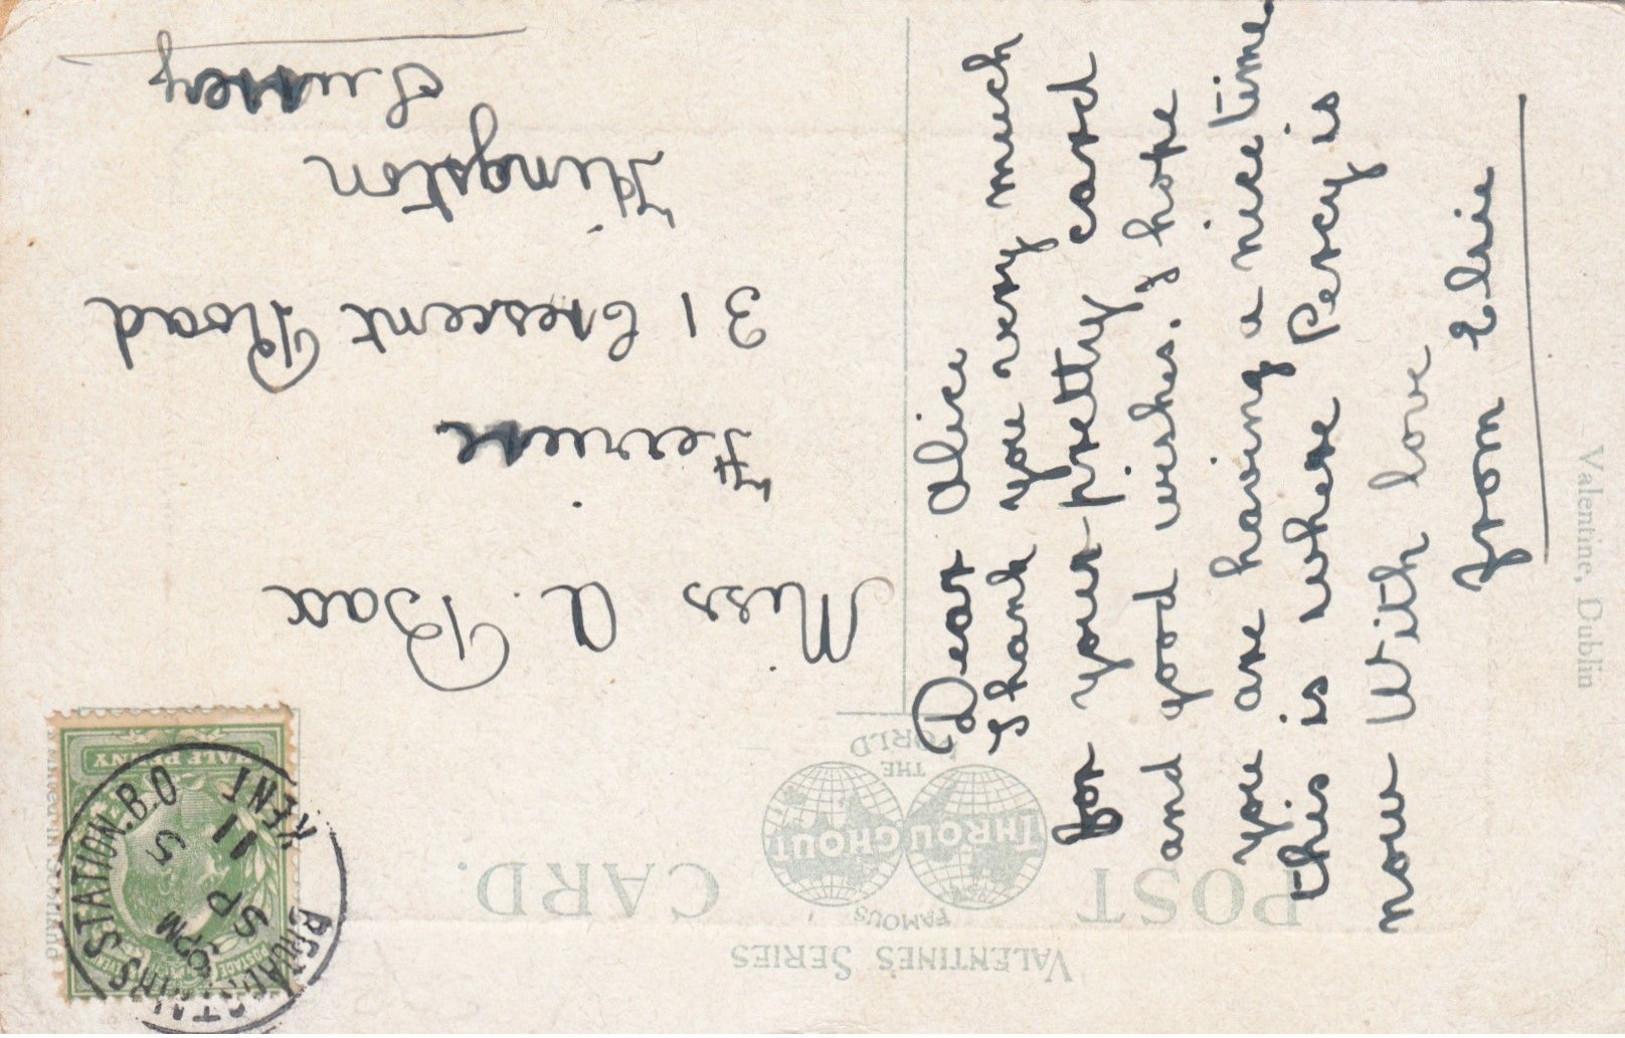 VALENTINES SERIES
FAMOUS
THROUGHOUT
THE
WORLD
POST CARD.
Dear Alice
Thank you very much
for your pretty card
and good wishes. I hope
you are having a nice time
this is where Percy is
now With love
from Elsie
Miss A. Bax
31 Crescent Road
Kingston
Surrey
HALF PENNY
POSTAGE
STATION.B.O
KENT
6 PM
SP 5
11
Valentine, Dublin